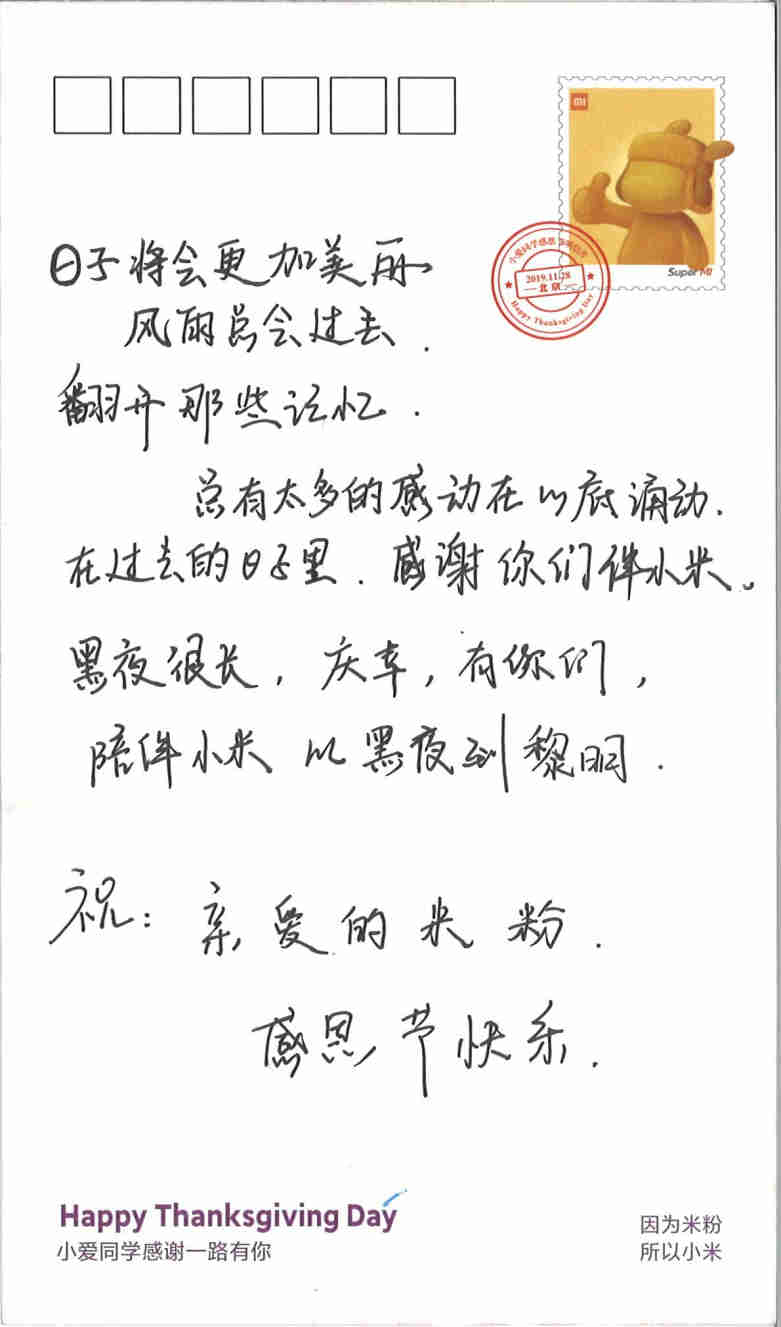 MI
Super MI
小爱同学感恩
2019.11.28
北京
Happy Thanksgiving Day
日子将会更加美丽
风雨总会过去.
翻开那些记忆.
总有太多的感动在心底涌动.
在过去的日子里.感谢你们伴小米。
黑夜很长,庆幸,有你们,
陪伴小米从黑夜到黎明.
祝:亲爱的米粉.
感恩节快乐.
Happy Thanksgiving Day
小爱同学感谢一路有你
因为米粉
所以小米